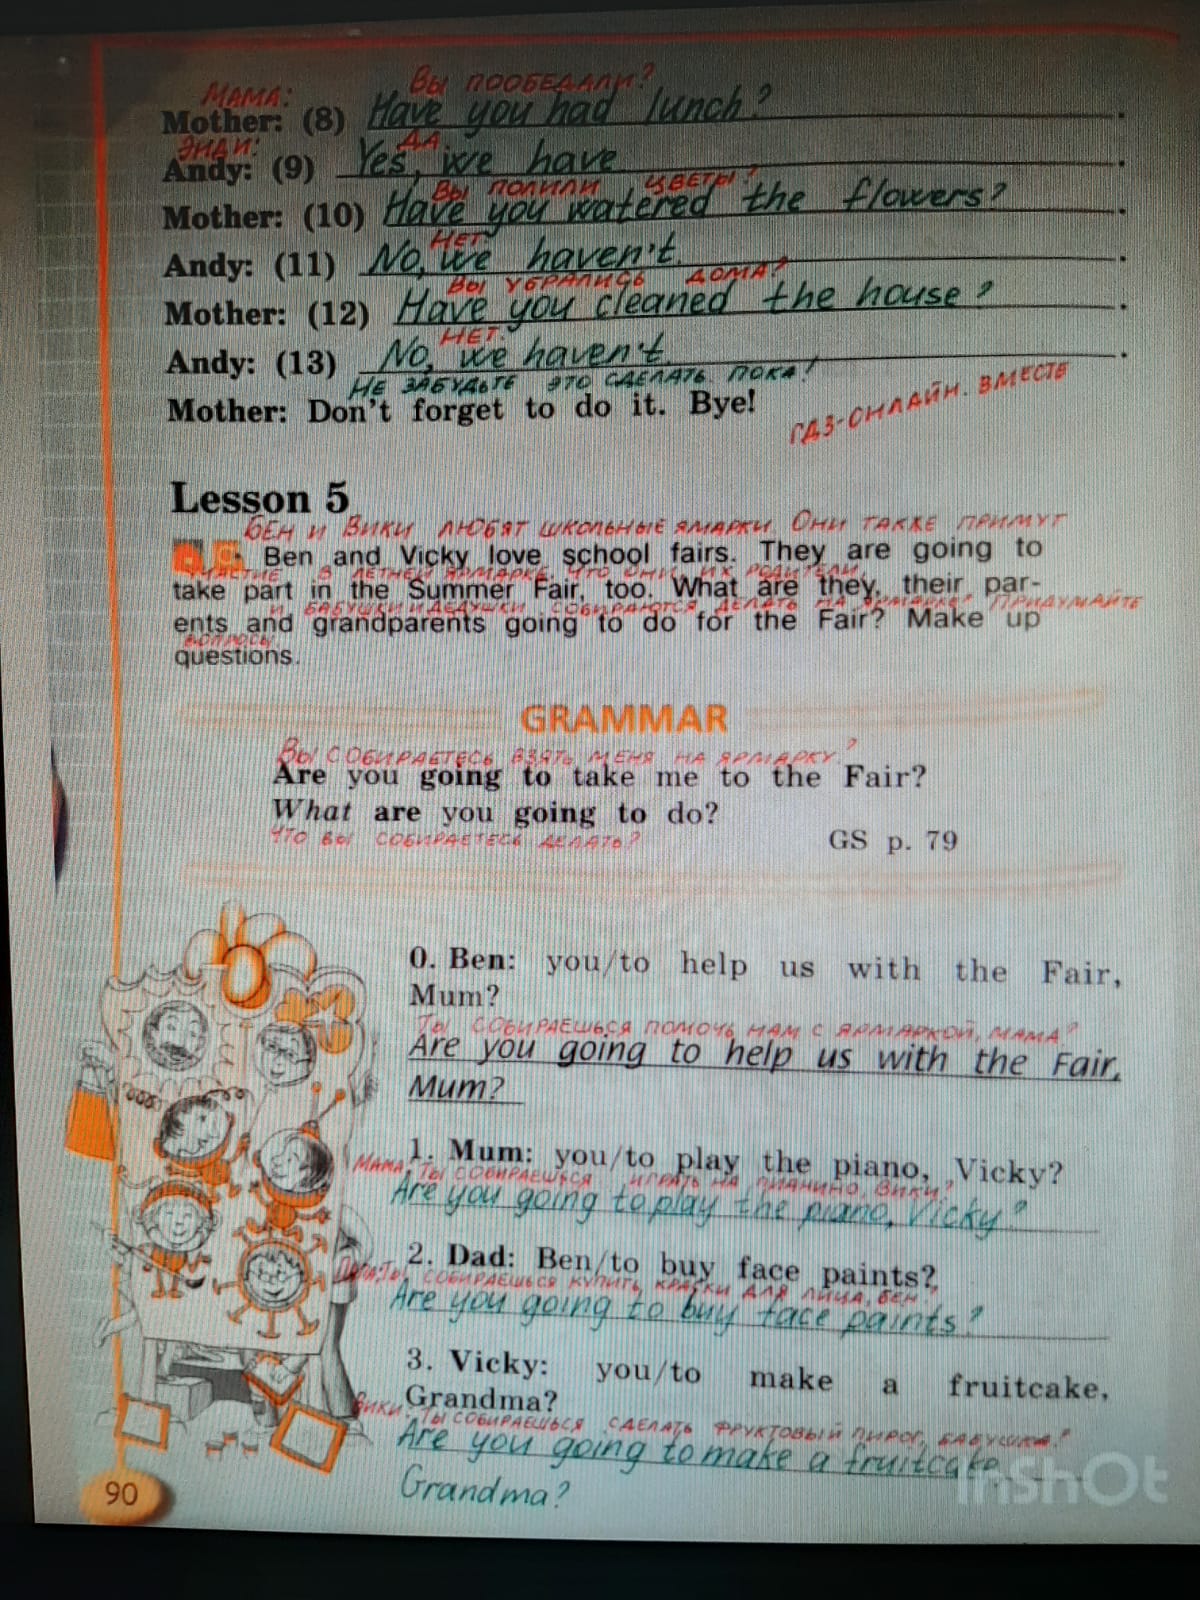 МАМА: ВЫ ПООБЕДАЛИ?
Mother: (8) Have you had lunch?
ЭНДИ: ДА.
Andy: (9) Yes, we have
ВЫ ПОЛИЛИ ЦВЕТЫ?
Mother: (10) Have you watered the flowers?
НЕТ.
Andy: (11) No, we haven't.
ВЫ УБРАЛИСЬ ДОМА?
Mother: (12) Have you cleaned the house?
НЕТ.
Andy: (13) No, we haven't.
НЕ ЗАБУДЬТЕ ЭТО СДЕЛАТЬ. ПОКА!
Mother: Don't forget to do it. Bye!
ГДЗ-ОНЛАЙН. ВМЕСТЕ
Lesson 5
БЕН И ВИКИ ЛЮБЯТ ШКОЛЬНЫЕ ЯМАРКИ. ОНИ ТАКЖЕ ПРИМУТ
Ben and Vicky love school fairs. They are going to
УЧАСТИЕ В ЛЕТНЕЙ ЯРМАРКЕ. ЧТО ОНИ, ИХ РОДИТЕЛИ,
take part in the Summer Fair, too. What are they, their par-
И БАБУШКИ И ДЕДУШКИ СОБИРАЮТСЯ ДЕЛАТЬ НА ЯРМАРКЕ. ПРИДУМАЙТЕ
ents and grandparents going to do for the Fair? Make up
ВОПРОСЫ.
questions.
GRAMMAR
ВЫ СОБИРАЕТЕСЬ ВЗЯТЬ МЕНЯ НА ЯРМАРКУ?
Are you going to take me to the Fair?
What are you going to do?
ЧТО ВЫ СОБИРАЕТЕСЬ ДЕЛАТЬ?
GS p. 79
0. Ben: you/to help us with the Fair,
Mum?
ТЫ СОБИРАЕШЬСЯ ПОМОЧЬ НАМ С ЯРМАРКОЙ, МАМА?
Are you going to help us with the Fair,
Mum?
1. Mum: you/to play the piano, Vicky?
МАМА: ТЫ СОБИРАЕШЬСЯ ИГРАТЬ НА ПИАНИНО, ВИКИ?
Are you going to play the piano, Vicky?
2. Dad: Ben/to buy face paints?
ПАПА: ТЫ СОБИРАЕШЬСЯ КУПИТЬ КРАСКИ ДЛЯ ЛИЦА, БЕН?
Are you going to buy face paints?
3. Vicky: you/to make a fruitcake,
Grandma?
ВИКИ: ТЫ СОБИРАЕШЬСЯ СДЕЛАТЬ ФРУКТОВЫЙ ПИРОГ, БАБУШКА?
Are you going to make a fruitcake,
Grandma?
InShOt
90